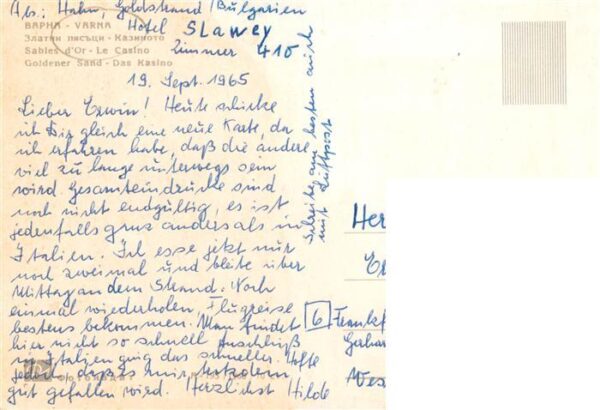 Abs: Hahn, Goldstrand/Bulgarien
Hotel Slawey
Zimmer 410
ВАРНА - VARNA
Златни пясъци - Казиното
Sables d'Or - Le Casino
Goldener Sand - Das Kasino
19. Sept. 1965
Lieber Erwin! Heute schicke
ich Dir gleich eine neue Karte, da
ich erfahren habe, daß die andere
viel zu lange unterwegs sein
wird. Gesamteindrücke sind
noch nicht endgültig, es ist
jedenfalls ganz anders als in
Italien. Ich esse jetzt nur
noch zweimal und bleibe über
Mittag an dem Strand. Noch
einmal wiederholen, Flugreise
bestens bekommen. Man findet
hier nicht so schnell Anschluß
in Italien ging das schneller. Hoffe
jedoch, daß es mir trotzdem
gut gefallen wird. Herzlichst Hilde
Schreibe am besten auch
mit Luftpost
Her
Er
6 Frankf
Wes